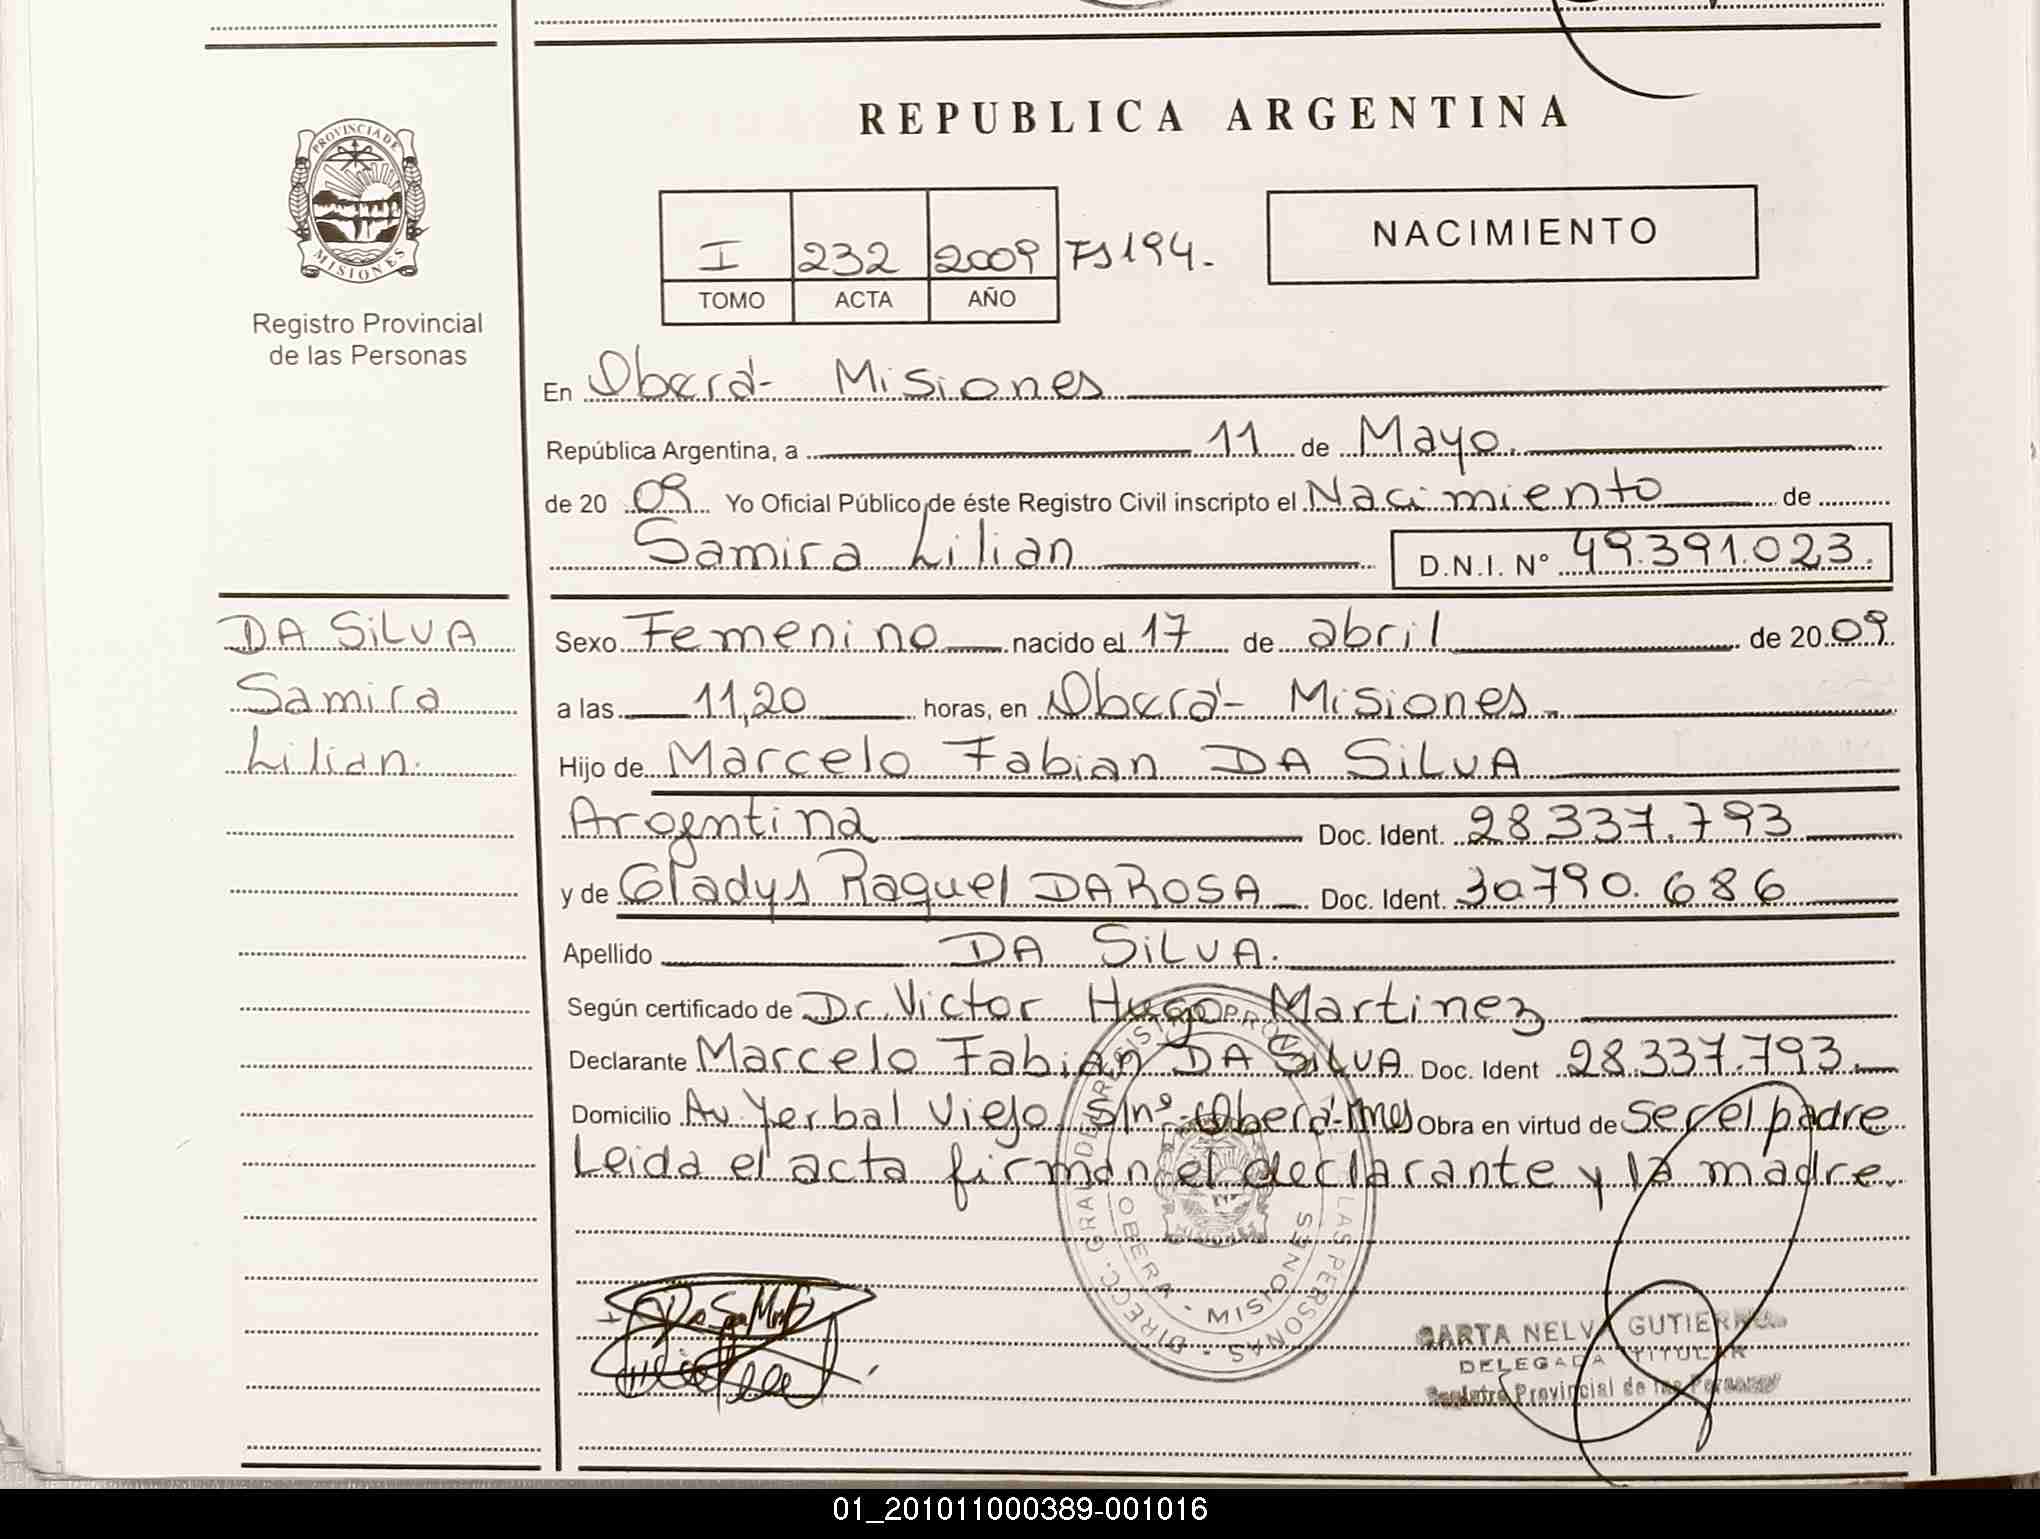 PROVINCIA DE
MISIONES
Registro Provincial
de las Personas
REPUBLICA ARGENTINA
I 232 2009 Fs 194.
TOMO ACTA AÑO
NACIMIENTO
En Oberá - Misiones
República Argentina, a 11 de Mayo.
de 20 09 Yo Oficial Público de éste Registro Civil inscripto el Nacimiento de
Samira Lilian D.N.I. N° 49.391.023.
DA SiLVA
Samira
Lilian.
Sexo Femenino nacido el 17 de abril de 20 09
a las 11,20 horas, en Oberá - Misiones.
Hijo de Marcelo Fabian DA SiLVA
Argentina Doc. Ident. 28.337.793
y de Gladys Raquel DA ROSA Doc. Ident. 30790.686
Apellido DA SiLVA.
Según certificado de Dr. Victor Hugo Martinez
Declarante Marcelo Fabian DA SiLVA Doc. Ident 28.337.793.
Domicilio Av. Yerbal Viejo S/nº - Oberá - Mnes Obra en virtud de ser el padre
Leida el acta firman el declarante y la madre.
DIRECC. GRAL. DEL REGISTRO PROV. LAS PERSONAS
OBERA - MISIONES
NELVA GUTIERREZ
DELEGADA TITULAR
Registro Provincial de las Personas
01_201011000389-001016